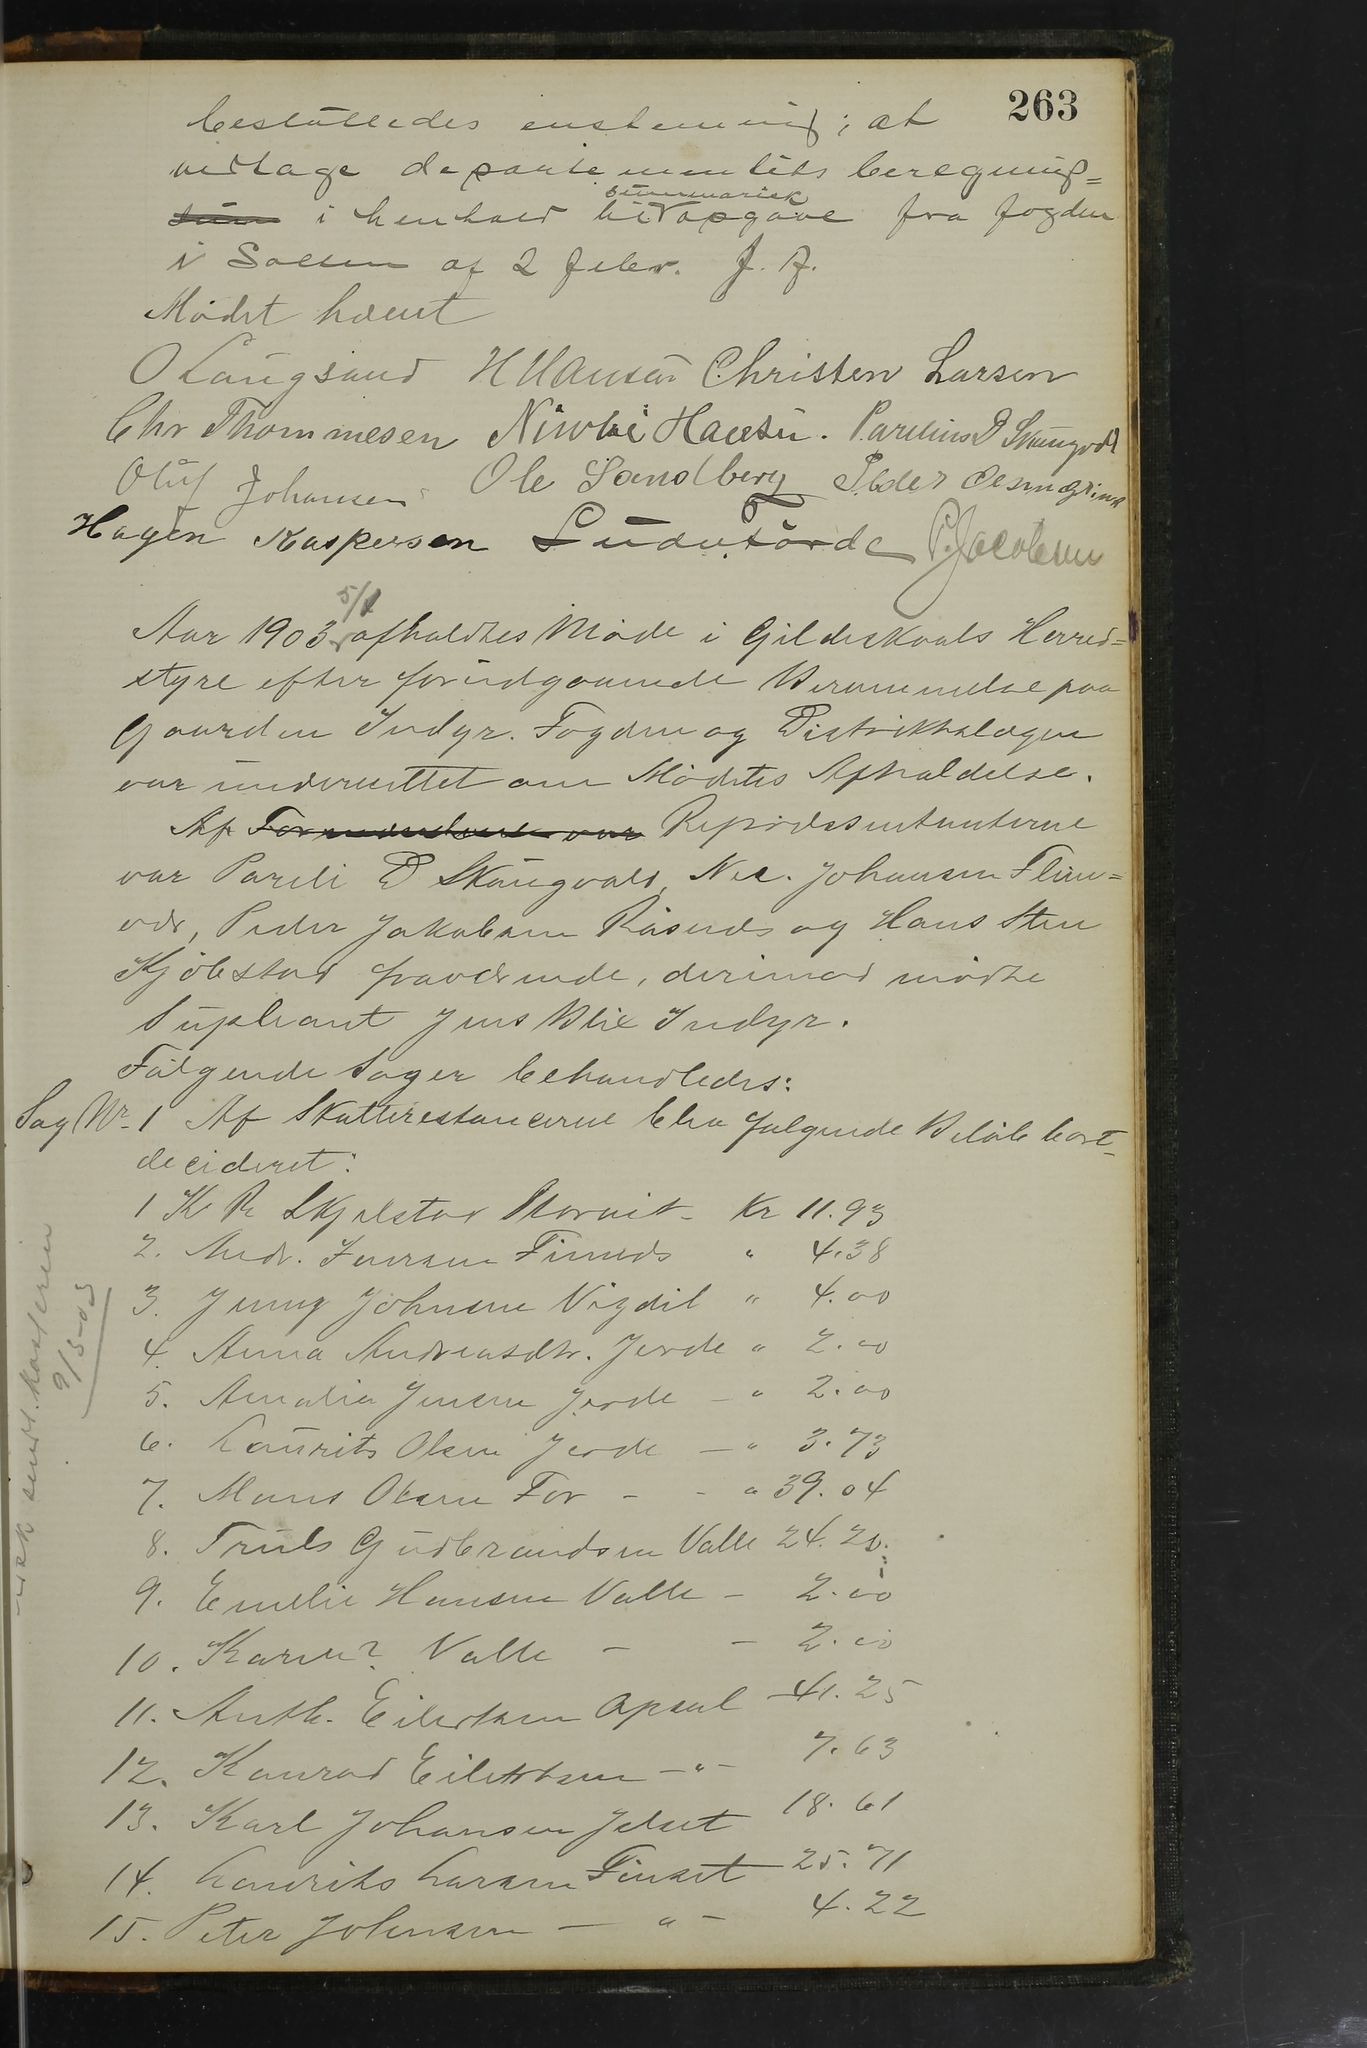 263
besluttedes enstemmig; at
vedtage departementets beregning=
i henhold til summarisk opgave fra fogden
i Salten af 2 febr. f. A.
Mødet hævet
O Laugsand H Hansen Christen Larsen
Chr Thommesen Hansen. Parelius D Skaugvold
Oluf Johansen Ole Sandberg Peder
Hagen Kaspersen P. Jacobsen
Aar 1903 5/1 afholdtes Møde i Gildeskaals Herred=
styre efter forudgaaende Berammelse paa
Gaarden Indyr. Fogden og Distriktslægen
var underrettet om Mødets Afholdelse.
Af Repræsentanterne
var Pareli D Skaugvold, Nic. Johansen Flein=
ær, Peder Jakobsen Øisund og Hans Sten
Kjøbstad fraværende, derimod mødte
Supleant Jens Blix Indyr.
Følgende Sager behandledes:
Sag Nr. 1 Af Skatterestancerne blev følgende Beløb bort-
decideret:
1 K R Skjelstad Storvik - Kr 11.93
2. Andr. Iversen Finnes " 4.38
3. Jenny Johnsen Vigdel " 4.00
4. Anna Andreasdtr. Forde " 2.00
5. Amalia Jensen Forde - " 2.00
6. Laurits Olsen Forde - " 3.73
7. Mons Olsen For - - " 39.04
8. Truls Gudbrandsen Valle 24.20.
9. Emelie Hansen Valle - 2.00
10. Karen? Valle - - 2.00
11. Anth. Eilertsen Opsal - 41.25
12. Konrad Eilertsen - " - 7.63
13. Karl Johansen Jelset 18.61
14. Laurits Larsen Finset 25.71
15. Peter Johnsen - " - 4.22
udsk sendt Kasseren
9/3-03